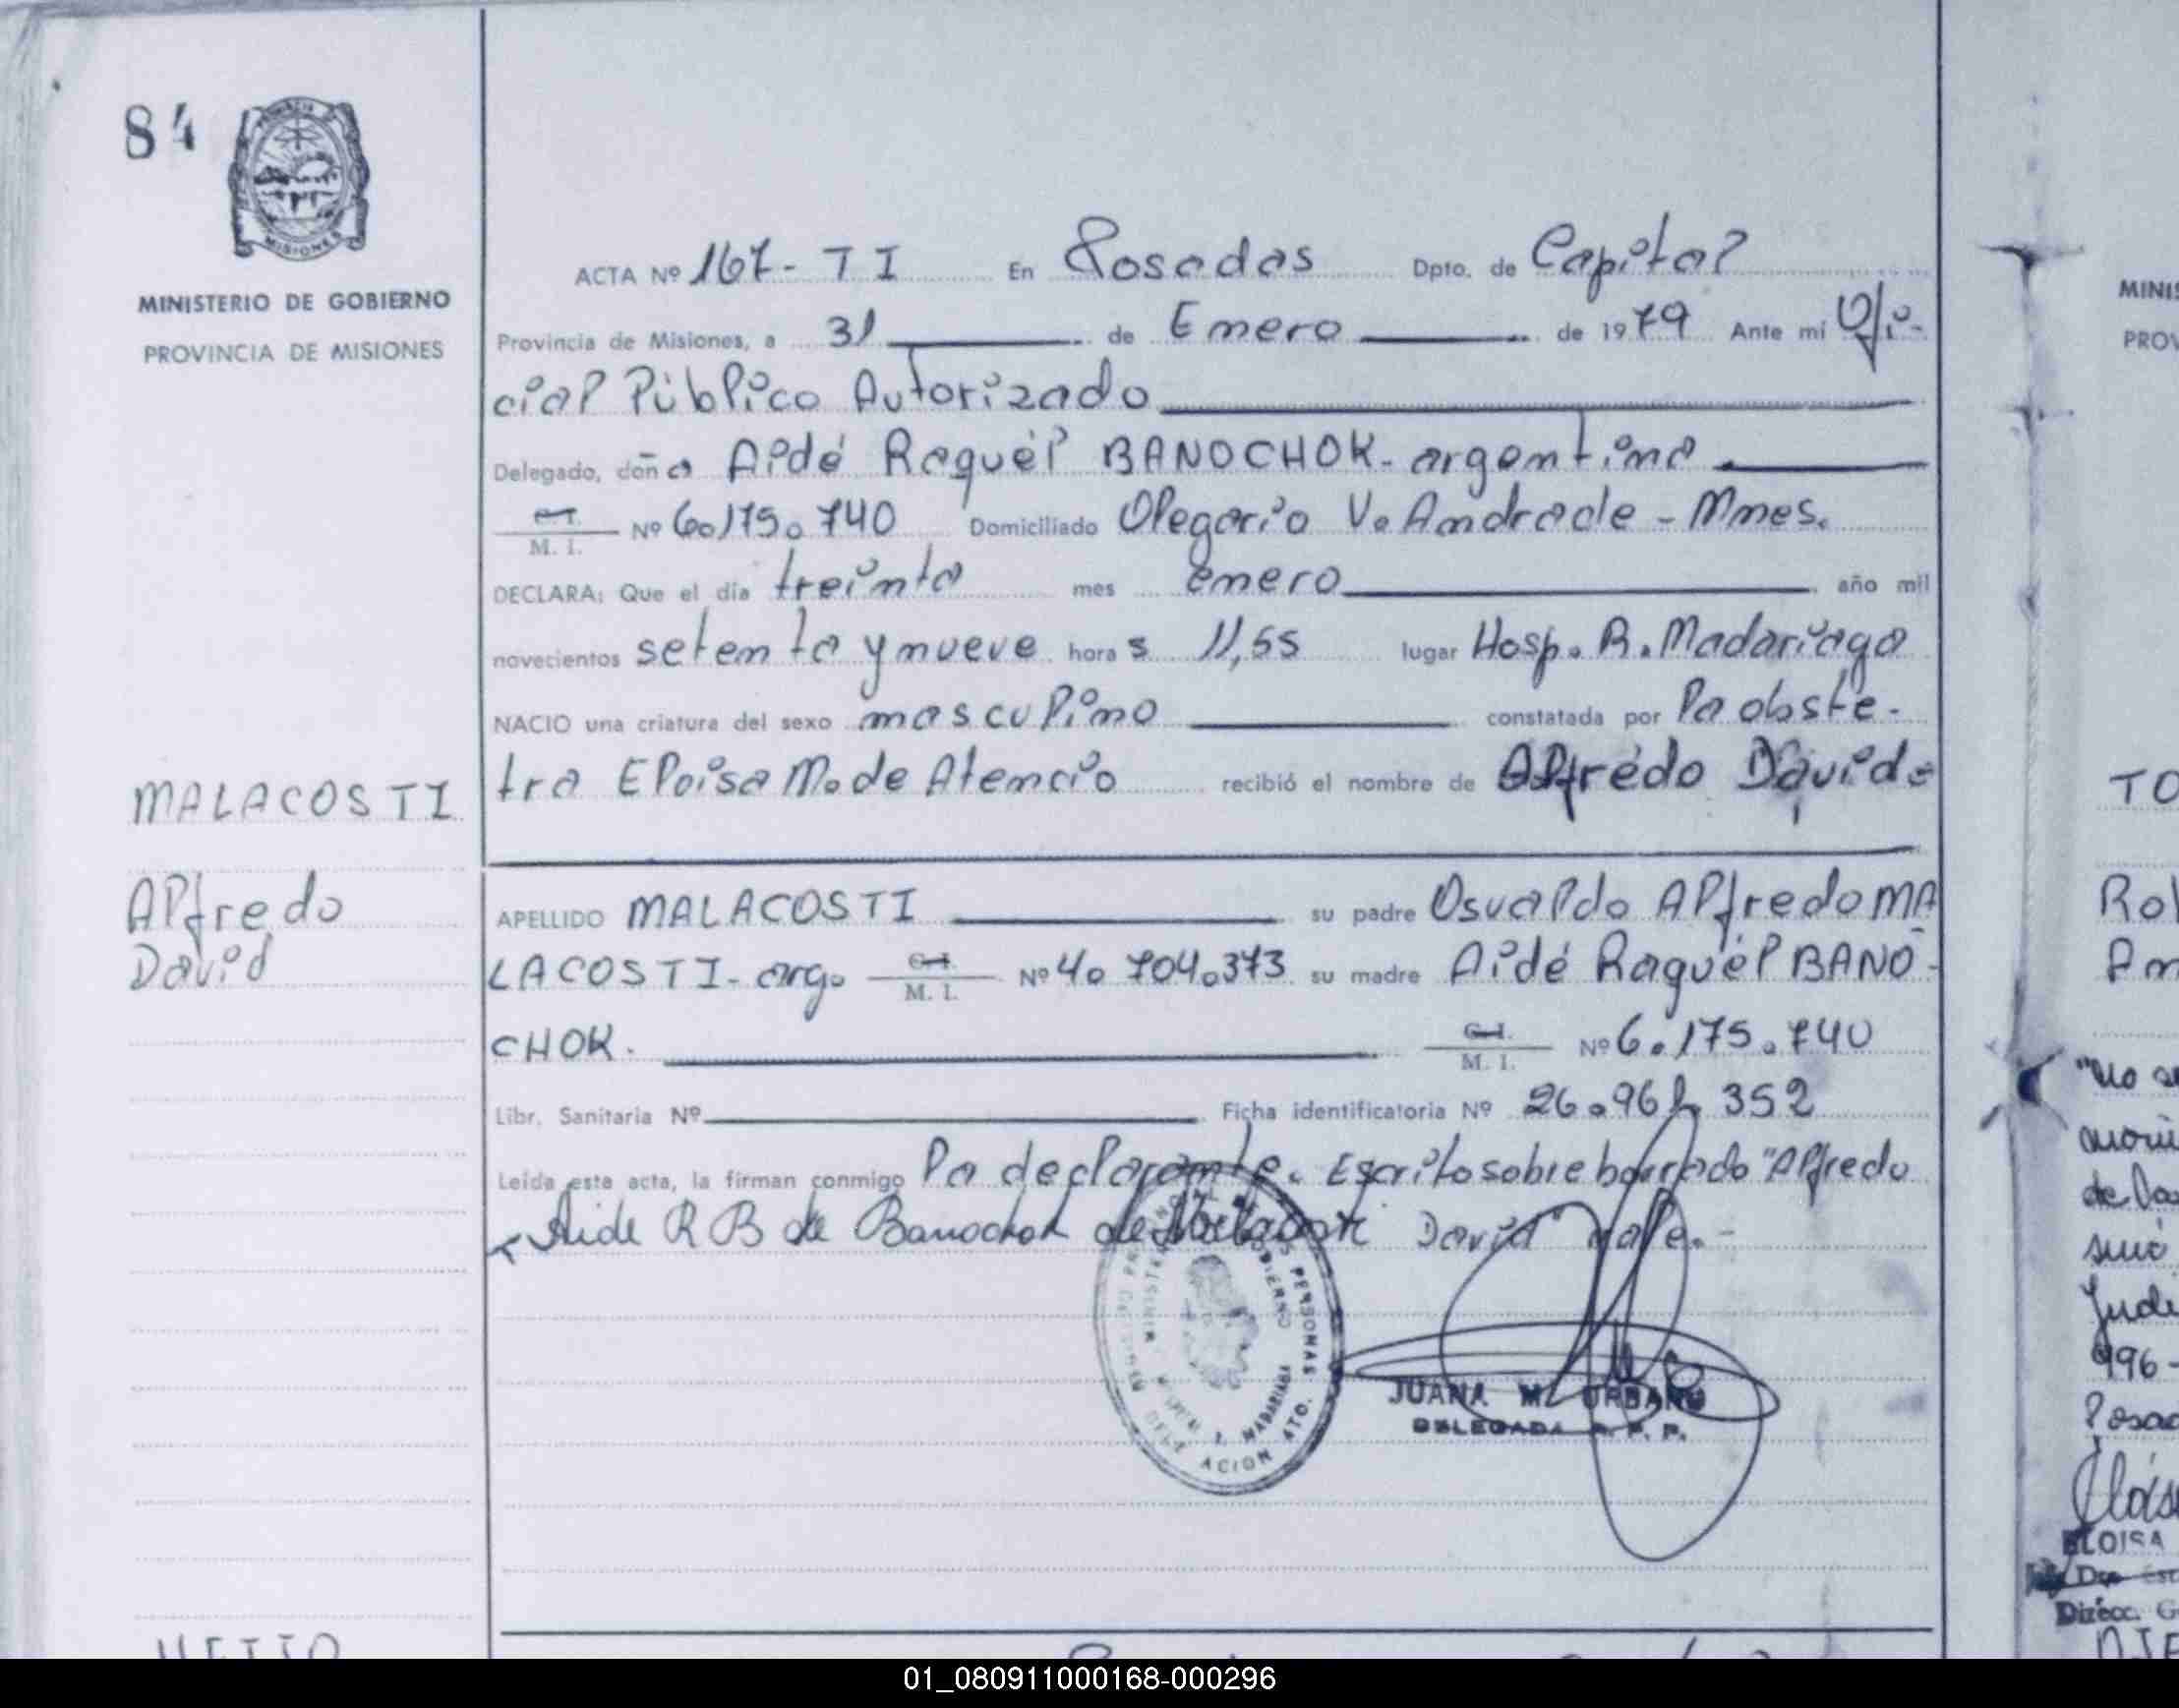 84
MISIONES
MINISTERIO DE GOBIERNO
PROVINCIA DE MISIONES
MALACOSTI
Alfredo
David
ACTA Nº 167- TI En Posadas Dpto. de Capital
Provincia de Misiones, a 31 de Enero de 1979 Ante mi Ofi-
cial Público Autorizado
Delegado, doña Aidé Raquél BANOCHOK- argentina
C.I. M. I. Nº 6.175.740 Domiciliado Olegario V. Andrade - Mnes.
DECLARA: Que el día treinta mes enero año mil
novecientos setenta y nueve horas 11,55 lugar Hosp. R. Madariaga
NACIO una criatura del sexo masculino constatada por la obste-
tra Eloisa M. de Atencio recibió el nombre de Alfrédo David.
APELLIDO MALACOSTI su padre Osvaldo Alfredo MA
LACOSTI- arg. C.I. M. I. Nº 4. 704.373 su madre Aidé Raquél BANO-
CHOK. C.I. M. I. Nº 6.175.740
Libr. Sanitaria Nº Ficha identificatoria Nº 26.967 352
Leída este acta, la firman conmigo la declarante. Escrito sobre borrado "Alfredo
Aide R B de Banochok de Malacosti David" vale.-
JUANA M. URBANO
DELEGADA R. P. P.
MINIS
PROV
TO
Rol
judi
996-
Posad
ELOISA
Direcc. G
01_080911000168-000296